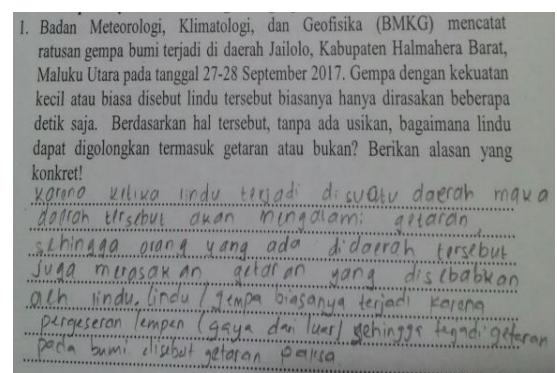 1. Badan Meteorologi, Klimatologi, dan Geofisika (BMKG) mencatat
ratusan gempa bumi terjadi di daerah Jailolo, Kabupaten Halmahera Barat,
Maluku Utara pada tanggal 27-28 September 2017. Gempa dengan kekuatan
kecil atau biasa disebut lindu tersebut biasanya hanya dirasakan beberapa
detik saja. Berdasarkan hal tersebut, tanpa ada usikan, bagaimana lindu
dapat digolongkan termasuk getaran atau bukan? Berikan alasan yang
konkret!
Karena ketika lindu terjadi disuatu daerah maka
daerah tersebut akan mengalami getaran
sehingga orang yang ada didaerah tersebut
juga merasakan getaran yang disebabkan
oleh lindu. Lindu / gempa biasanya terjadi karena
pergeseran lempen (gaya dari luar) sehingga terjadi getaran
pada bumi disebut getaran paksa